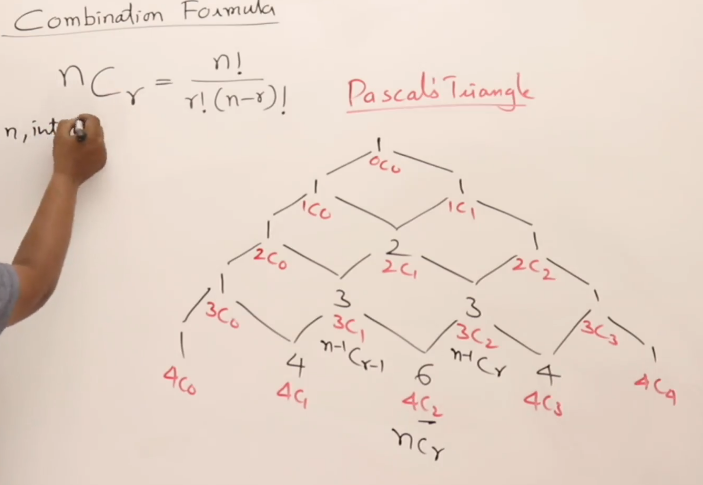 Combination Formula
nCr = n! / r!(n-r)!
n, int
Pascal's Triangle
1
0C0
1 1
1C0 1C1
1 2 1
2C0 2C1 2C2
1 3 3 1
3C0 3C1 3C2 3C3
n-1Cr-1 n-1Cr
1 4 6 4 1
4C0 4C1 4C2 4C3 4C4
nCr